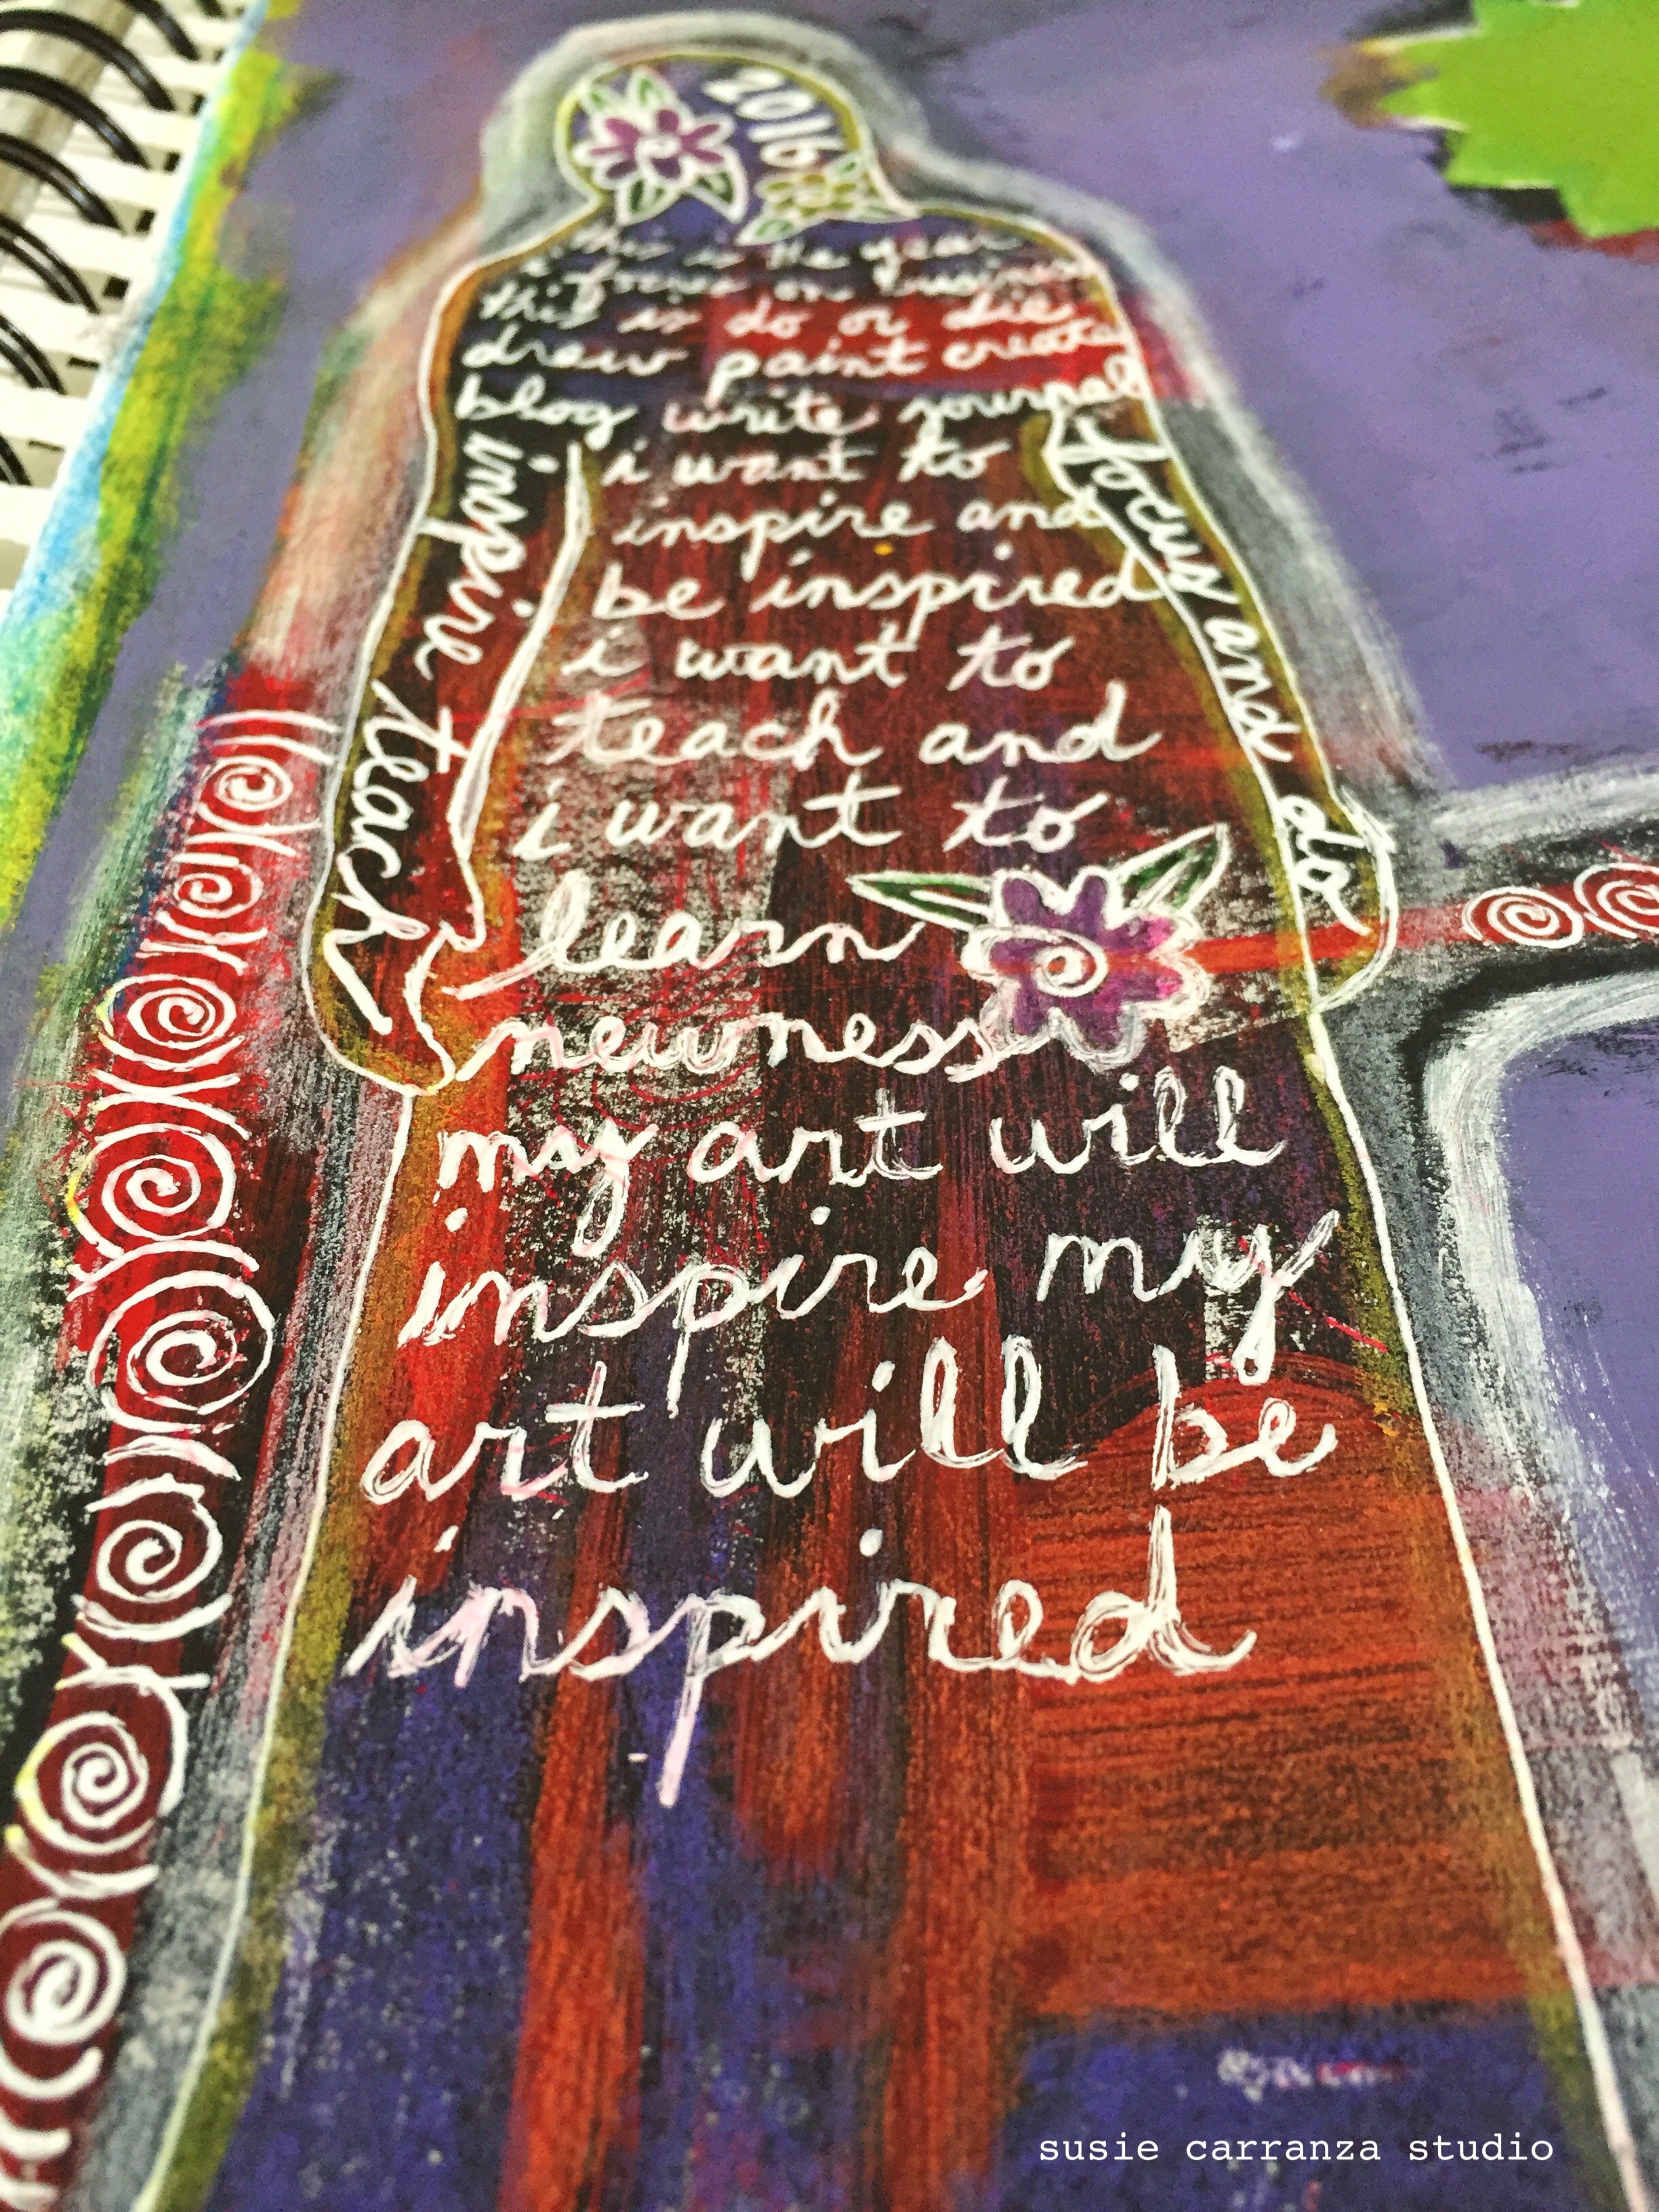 2016
this is the year
i focus on business
this is do or die
draw paint create
blog write journal
i want to
inspire and
be inspired
i want to
teach and
i want to
learn
newness
my art will
inspire my
art will be
inspired
inspire teach
focus and do
susie carranza studio